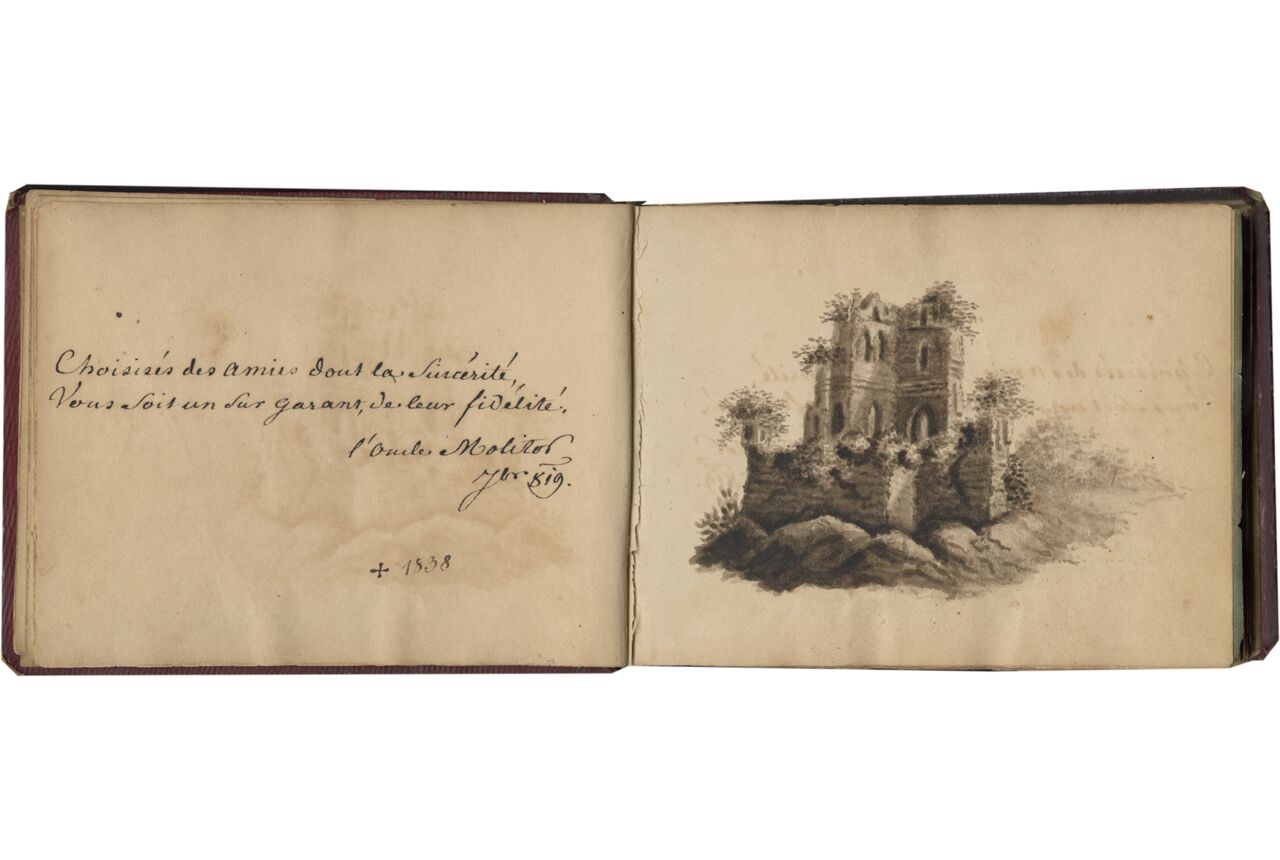 Choisisés des amies dont la Sincérité,
Vous soit un Sur garant, de leur fidélité.
l'oncle Molitor
7br 819.
+ 1838